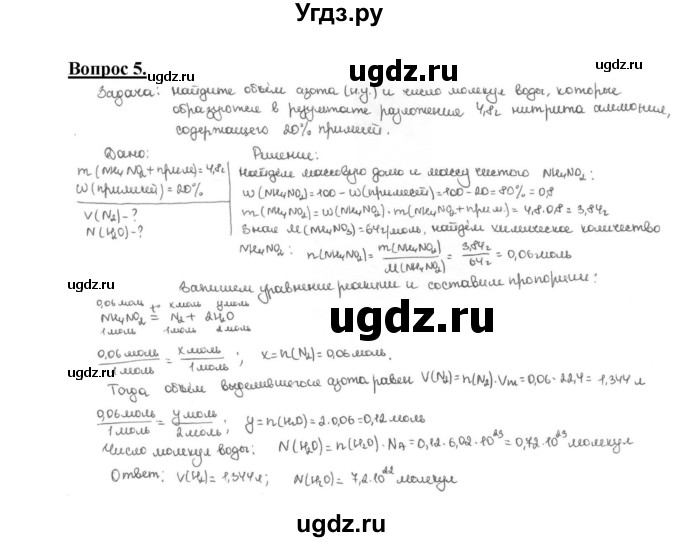 Угдз.ру
Вопрос 5.
Задача: найдите объём азота (н.у.) и число молекул воды, которые
образуются в результате разложения 4,8г нитрита аммония,
содержащего 20% примесей.
Дано:
m(NH₄NO₂+прим)=4,8г
ω(примесей)=20%
V(N₂)-?
N(H₂O)-?
Решение:
Найдём массовую долю и массу чистого NH₄NO₂:
ω(NH₄NO₂)=100-ω(примесей)=100-20=80%=0,8
m(NH₄NO₂)=ω(NH₄NO₂)·m(NH₄NO₂+прим.)=4,8·0,8=3,84г
Зная M(NH₄NO₂)=64г/моль, найдём химическое количество
NH₄NO₂: n(NH₄NO₂)=m(NH₄NO₂)/M(NH₄NO₂)=3,84г/64г=0,06моль
Запишем уравнение реакции и составим пропорции:
0,06моль xмоль yмоль
NH₄NO₂ t°= N₂ + 2H₂O
1моль 1моль 2моль
0,06моль/1моль = xмоль/1моль; x=n(N₂)=0,06моль.
Тогда объём выделившегося азота равен V(N₂)=n(N₂)·Vm=0,06·22,4=1,344л
0,06моль/1моль = yмоль/2моль; y=n(H₂O)=2·0,06=0,12моль
Число молекул воды: N(H₂O)=n(H₂O)·NA=0,12·6,02·10²³=0,72·10²³молекул
Ответ: V(N₂)=1,344л; N(H₂O)=7,2·10²² молекул
ugdz.ru
ugdz.ru
ugdz.ru
ugdz.ru
ugdz.ru
ugdz.ru
ugdz.ru
ugdz.ru
ugdz.ru
ugdz.ru
ugdz.ru